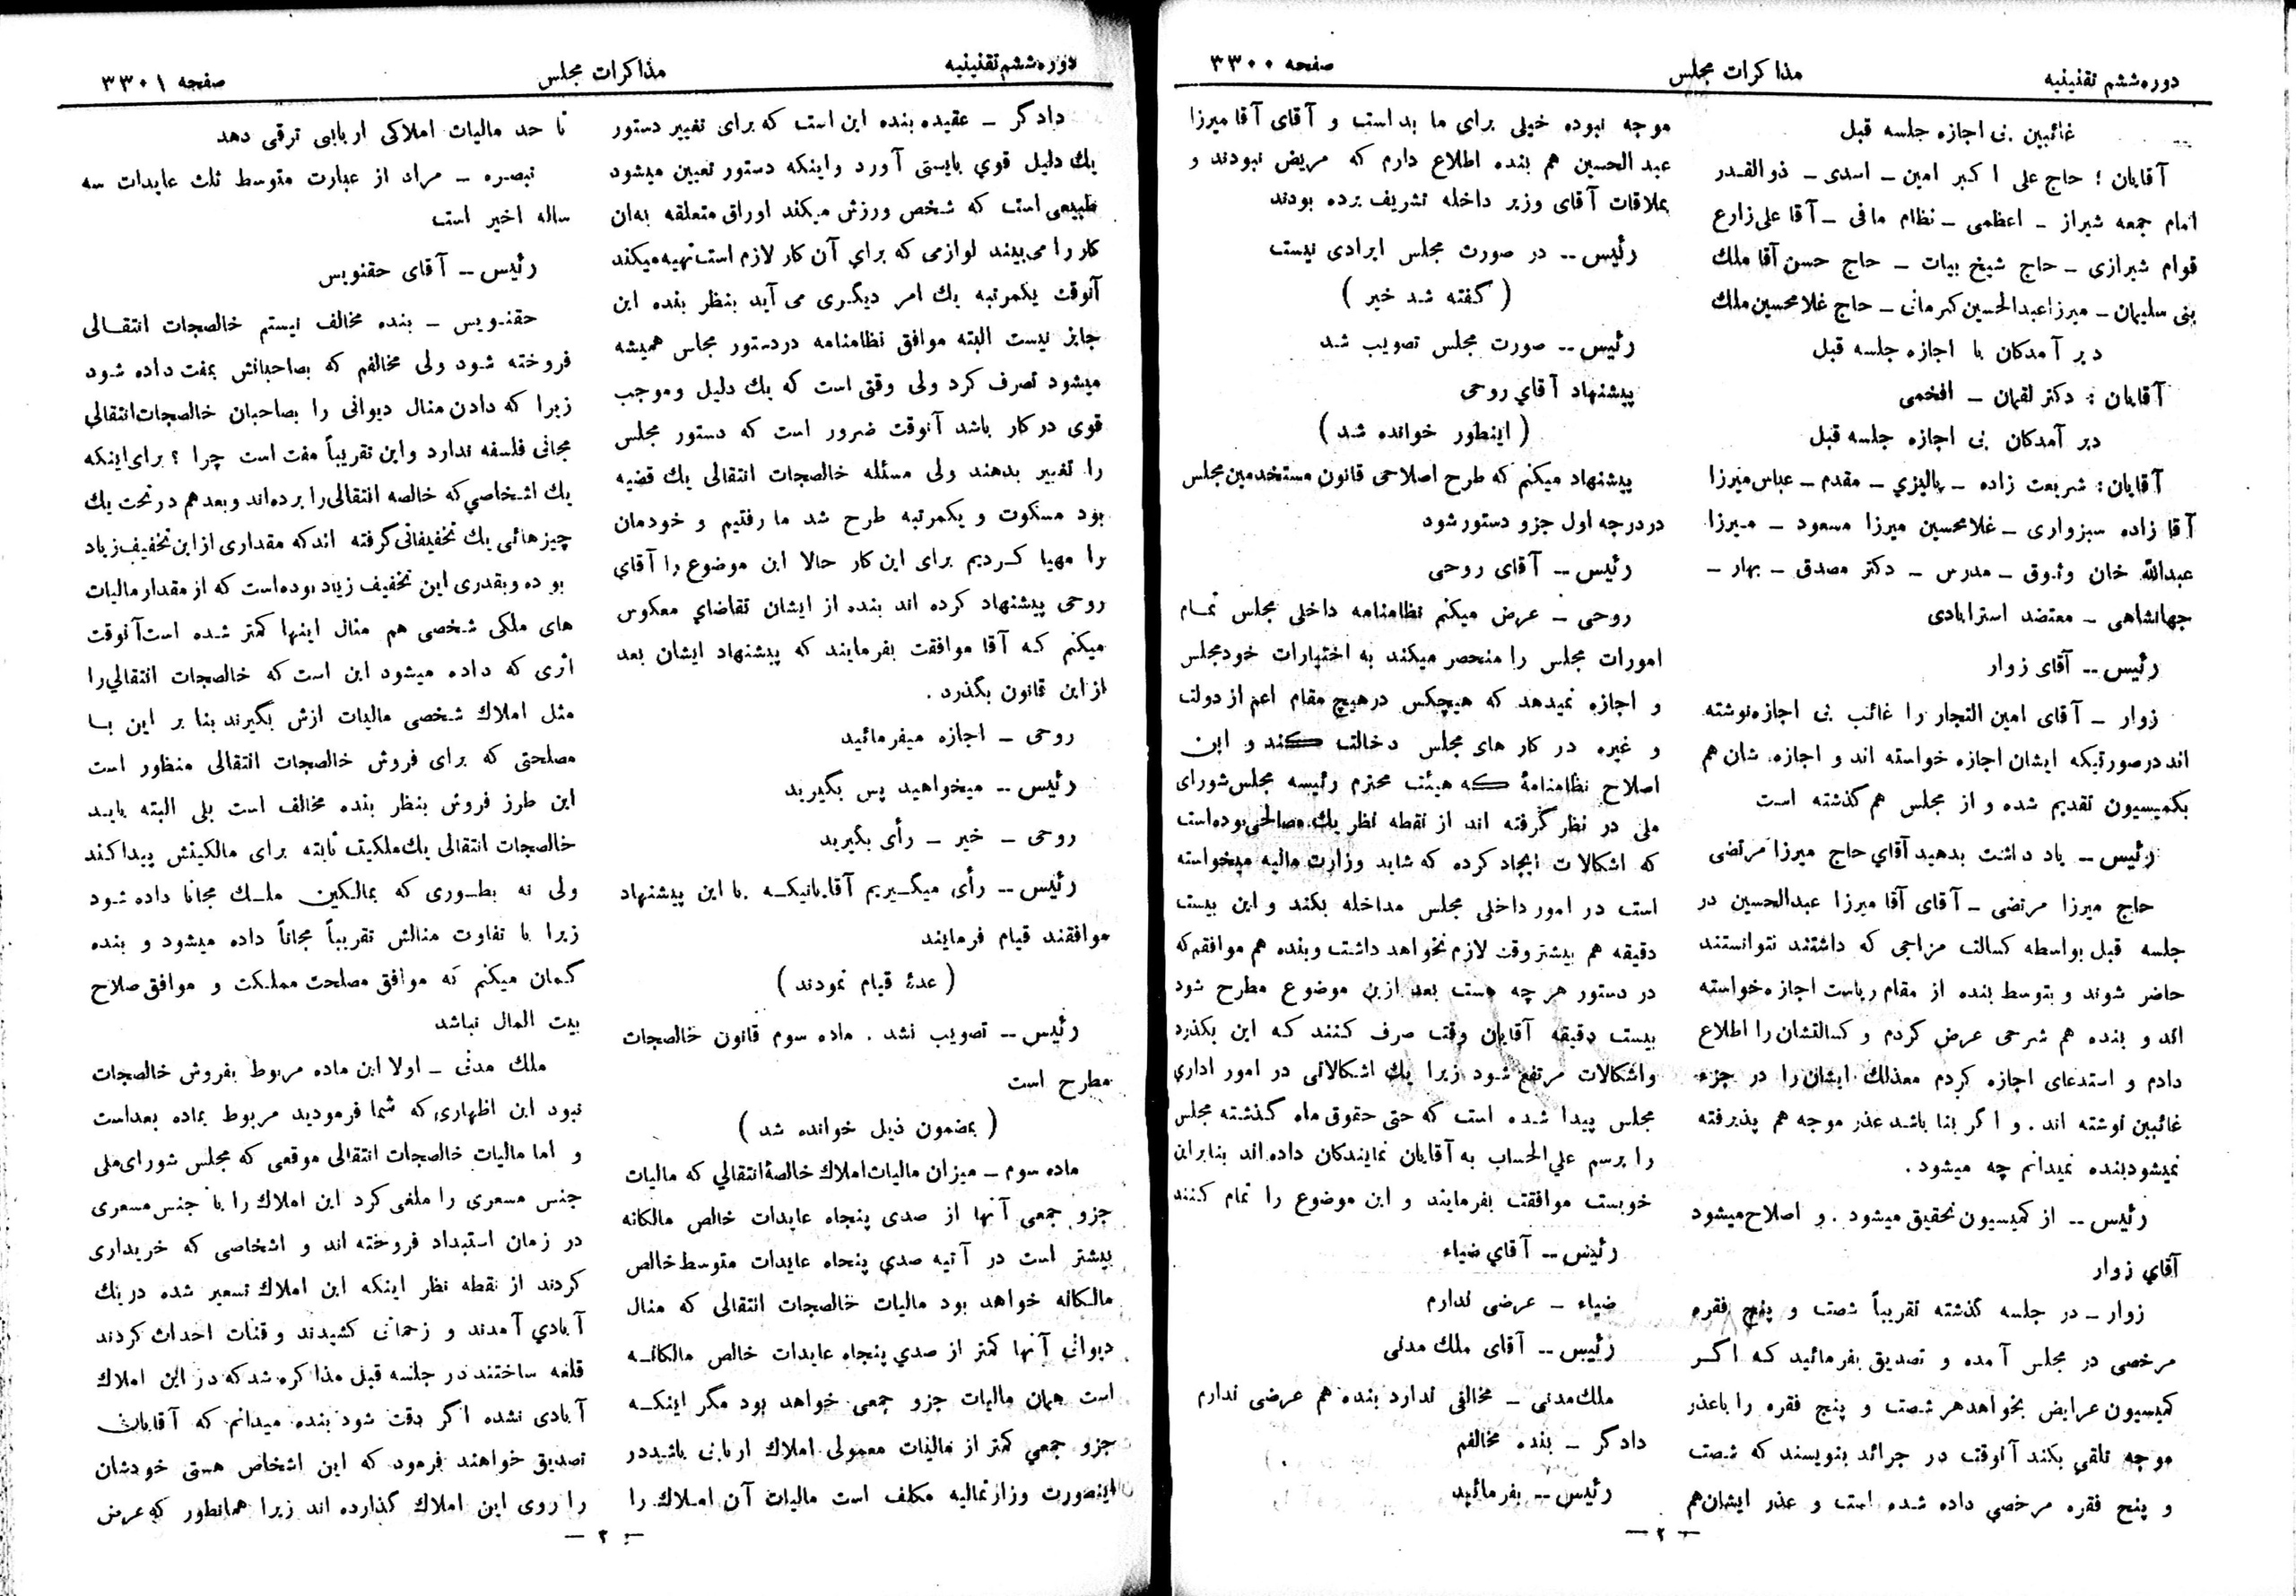 دوره ششم تقنینیه
مذاکرات مجلس
صفحه ۳۳۰۰
غائبین بی اجازه جلسه قبل
آقایان : حاج علی اکبر امین ــ اسدی ــ ذوالقدر
امام جمعه شیراز ــ اعظمی ــ نظام مافی ــ آقا علی زارع
قوام شیرازی ــ حاج شیخ بیات ــ حاج حسن آقا ملك
بنی سلیمان ــ میرزا عبدالحسین کرمانی ــ حاج غلامحسین ملك
دیر آمدکان با اجازه جلسه قبل
آقایان : دکتر لقمان ــ افخمی
دیر آمدکان بی اجازه جلسه قبل
آقایان : شریعت زاده ــ پالیزي ــ مقدم ــ عباس میرزا
آقا زاده سبزواری ــ غلامحسین میرزا مسعود ــ میرزا
عبدالله خان وثوق ــ مدرس ــ دکتر مصدق ــ بهار ــ
جهانشاهی ــ معتضد استرابادی
رئیس ــ آقای زوار
زوار ــ آقای امین التجار را غائب بی اجازه نوشته
اند در صورتیکه ایشان اجازه خواسته اند و اجازه شان هم
بکمیسیون تقدیم شده و از مجلس هم گذشته است
رئیس ــ یاد داشت بدهید آقاي حاج میرزا مرتضی
حاج میرزا مرتضی ــ آقای آقا میرزا عبدالحسین در
جلسه قبل بواسطه کسالت مزاجی که داشتند نتوانستند
حاضر شوند و بتوسط بنده از مقام ریاست اجازه خواسته
اند و بنده هم شرحی عرض کردم و کسالتشان را اطلاع
دادم و استدعای اجازه کردم معذلك ایشان را در جزء
غائبین نوشته اند . و اگر بنا باشد عذر موجه هم پذیرفته
نمیشود بنده نمیدانم چه میشود .
رئیس ــ از کمیسیون تحقیق میشود . و اصلاح میشود
آقاي زوار
زوار ــ در جلسه گذشته تقریباً شصت و پنج فقره
مرخصی در مجلس آمده و تصدیق بفرمائید که اگر
کمیسیون عرایض بخواهد هر شصت و پنج فقره را با عذر
موجه تلقی بکند آنوقت در جرائد بنویسند که شصت
و پنج فقره مرخصی داده شده است و عذر ایشان هم
موجه نبوده خیلی برای ما بد است و آقای آقا میرزا
عبد الحسین هم بنده اطلاع دارم که مریض نبودند و
بملاقات آقای وزیر داخله تشریف برده بودند
رئیس ــ در صورت مجلس ایرادی نیست
( گفته شد خیر )
رئیس ــ صورت مجلس تصویب شد
پیشنهاد آقاي روحی
( اینطور خوانده شد )
پیشنهاد میکنم که طرح اصلاحی قانون مستخدمین مجلس
در درجه اول جزو دستور شود
رئیس ــ آقای روحی
روحی ــ عرض میکنم نظامنامه داخلی مجلس تمام
امورات مجلس را منحصر میکند به اختیارات خود مجلس
و اجازه نمیدهد که هیچکس در هیچ مقام اعم از دولت
و غیره در کار های مجلس دخالت کند و این
اصلاح نظامنامهٔ که هیئت محترم رئیسه مجلس شورای
ملی در نظر گرفته اند از نقطه نظر یك مصالحی بوده است
که اشکالات ایجاد کرده که شاید وزارت مالیه میخواسته
است در امور داخلی مجلس مداخله بکند و این بیست
دقیقه هم بیشتر وقت لازم نخواهد داشت و بنده هم موافقم که
در دستور هر چه هست بعد ازین موضوع مطرح شود
بیست دقیقه آقایان وقت صرف کنند که این بگذرد
واشکالات مرتفع شود زیرا یك اشکالاتی در امور اداري
مجلس پیدا شده است که حتی حقوق ماه گذشته مجلس
را برسم علي الحساب به آقایان نمایندگان داده اند بنابراین
خوبست موافقت بفرمایند و این موضوع را تمام کنند
رئیس ــ آقاي ضیاء
ضیاء ــ عرضی ندارم
رئیس ــ آقای ملك مدنی
ملك مدنی ــ مخالفی ندارد بنده هم عرضی ندارم
دادگر ــ بنده مخالفم
رئیس ــ بفرمائید
ــ ۲ ــ
دوره ششم تقنینیه
مذاکرات مجلس
صفحه ۳۳۰۱
دادگر ــ عقیده بنده این است که برای تغییر دستور
یك دلیل قوي بایستی آورد و اینکه دستور تعیین میشود
طبیعی است که شخص ورزش میکند اوراق متعلقه به آن
کار را می بیند لوازمی که براي آن کار لازم است تهیه میکند
آنوقت یکمرتبه یك امر دیگری می آید بنظر بنده این
جایز نیست البته موافق نظامنامه در دستور مجلس همیشه
میشود تصرف کرد ولی وقتی است که یك دلیل و موجب
قوی در کار باشد آنوقت ضرور است که دستور مجلس
را تغییر بدهند ولی مسئله خالصجات انتقالی یك قضیه
بود مسکوت و یکمرتبه طرح شد ما رفتیم و خودمان
را مهیا کردیم برای این کار حالا این موضوع را آقاي
روحی پیشنهاد کرده اند بنده از ایشان تقاضاي معکوس
میکنم که آقا موافقت بفرمایند که پیشنهاد ایشان بعد
از این قانون بگذرد .
روحی ــ اجازه میفرمائید
رئیس ــ میخواهید پس بگیرید
روحی ــ خیر ــ رأی بگیرید
رئیس ــ رأی میگیریم آقایانیکه با این پیشنهاد
موافقند قیام فرمایند
( عدهٔ قیام نمودند )
رئیس ــ تصویب نشد . ماده سوم قانون خالصجات
مطرح است
( بمضمون ذیل خوانده شد )
ماده سوم ــ میزان مالیات املاك خالصهٔ انتقالي که مالیات
جزو جمعی آنها از صدی پنجاه عایدات خالص مالکانه
بیشتر است در آتیه صدی پنجاه عایدات متوسط خالص
مالکانه خواهد بود مالیات خالصجات انتقالی که منال
دیوانی آنها کمتر از صدي پنجاه عایدات خالص مالکانه
است همان مالیات جزو جمعی خواهد بود مگر اینکه
جزو جمعي کمتر از مالیات معمولی املاك اربابی باشد در
اینصورت وزارتمالیه مکلف است مالیات آن املاك را
تا حد مالیات املاکی اربابی ترقی دهد
تبصره ــ مراد از عبارت متوسط ثلث عایدات سه
ساله اخیر است
رئیس ــ آقای حقنویس
حقنویس ــ بنده مخالف نیستم خالصجات انتقالی
فروخته شود ولی مخالفم که بصاحبانش بمفت داده شود
زیرا که دادن منال دیوانی را بصاحبان خالصجات انتقالي
مجانی فلسفه ندارد و این تقریباً مفت است چرا ؟ برای اینکه
یك اشخاصي که خالصه انتقالی را برده اند و بعد هم در تحت یك
چیز هائی یك تخفیفاتی گرفته اند که مقداری از این تخفیف زیاد
بوده و بقدری این تخفیف زیاد بوده است که از مقدار مالیات
های ملکی شخصی هم منال اینها کمتر شده است آنوقت
اثری که داده میشود این است که خالصجات انتقالي را
مثل املاك شخصی مالیات ازش بگیرند بنا بر این با
مصلحتی که برای فروش خالصجات انتقالی منظور است
این طرز فروش بنظر بنده مخالف است بلی البته باید
خالصجات انتقالی یك ملکیت ثابته برای مالکینش پیدا کند
ولی نه بطوری که بمالکین ملك مجانا داده شود
زیرا با تفاوت منالش تقریباً مجاناً داده میشود و بنده
گمان میکنم که موافق مصلحت مملکت و موافق صلاح
بیت المال نباشد
ملك مدنی ــ اولا این ماده مربوط بفروش خالصجات
نبود این اظهاری که شما فرمودید مربوط بماده بعد است
و اما مالیات خالصجات انتقالی موقعی که مجلس شورای ملی
جنس مسعری را ملغی کرد این املاك را با جنس مسعری
در زمان استبداد فروخته اند و اشخاصی که خریداری
کردند از نقطه نظر اینکه این املاك تسعیر شده در یك
آبادي آمدند و زحماتی کشیدند و قنات احداث کردند
قلعه ساختند در جلسه قبل مذاکره شد که در این املاك
آبادی نشده اگر دقت شود بنده میدانم که آقایان
تصدیق خواهند فرمود که این اشخاص هستی خودشان
را روی این املاك گذارده اند زیرا همانطور که عرض
ــ ۳ ــ